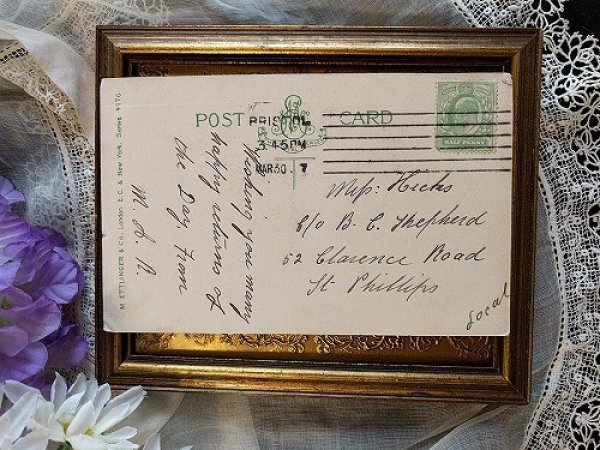 POST CARD
BRISTOL
3.45PM
MAR 30 7
HALF PENNY
M. ETTLINGER & Co., London. E.C. & New York. Series 4176.
Wishing you many
happy returns of
the Day, from
M. A. A.
Miss Hicks
c/o B. C. Shepherd
52 Clarence Road
St Phillips
Local